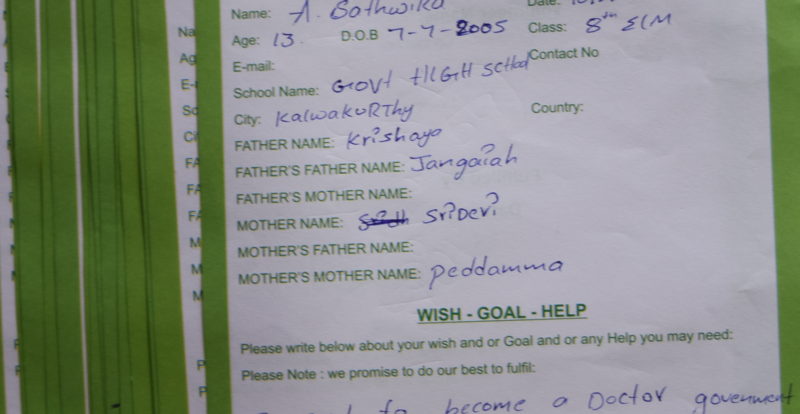 Name: A. Sathwika
Date:
Age: 13 D.O.B 7-7-2005 Class: 8th E/M
E-mail: Contact No
School Name: Govt HIGH SCHOOL
City: KalwakuRThy Country:
FATHER NAME: Krishaya
FATHER'S FATHER NAME: Jangaiah
FATHER'S MOTHER NAME:
MOTHER NAME: SriDevi
MOTHER'S FATHER NAME:
MOTHER'S MOTHER NAME: peddamma
WISH - GOAL - HELP
Please write below about your wish and or Goal and or any Help you may need:
Please Note : we promise to do our best to fulfil:
to become a Doctor government